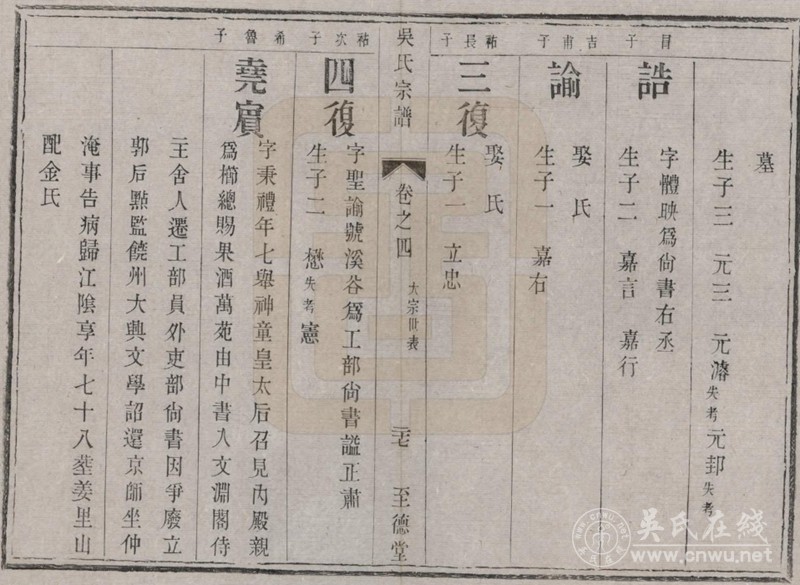 墓
生子三 元三 元濬失考元邽失考
目子
誥
字體映爲尙書右丞
生子二 嘉言 嘉行
吉甫子
諭
娶氏
生子一 嘉右
祐長子
三復
娶氏
生子一 立忠
吳氏宗譜 卷之四 大宗世表 至德堂
祐次子
四復
字聖諭號溪谷爲工部尙書謚正肅
生子二 懋失考 憲
希魯子
堯賓
字秉禮年七舉神童皇太后召見內殿親
爲櫛總賜果酒萬苑由中書入文淵閣侍
二王舍人遷工部員外吏部尙書因爭廢立
郭后㸃監饒州大興文學詔還京師坐仲
淹事告病歸江陰享年七十八塟姜里山
配金氏
吳氏在线
www.cnwu.net